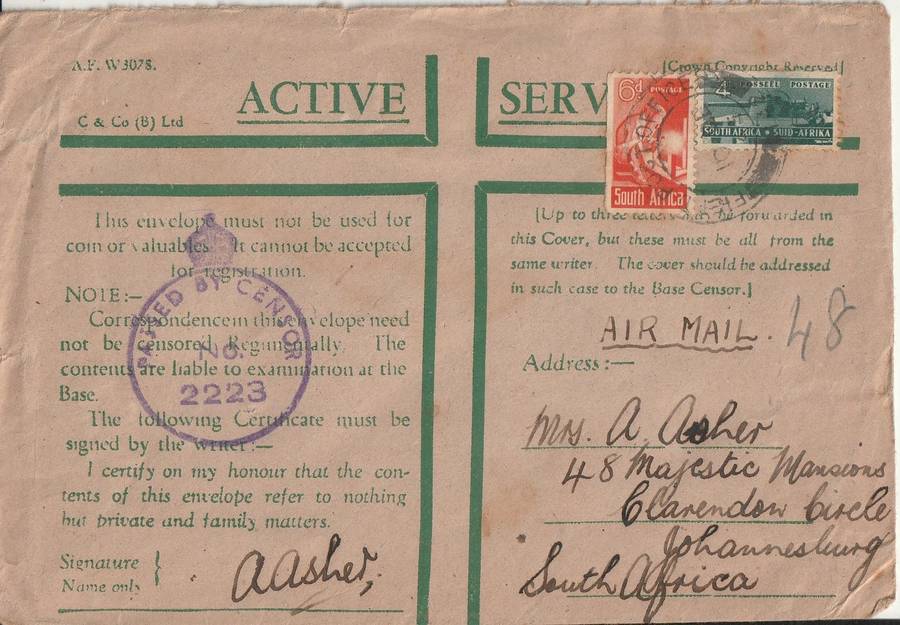 A.F. W3078.
[Crown Copyright Reserved]
C & Co (B) Ltd
ACTIVE
SERV
6d POSTAGE
South Africa
4 POSSEEL POSTAGE
SOUTH AFRICA • SUID-AFRIKA
This envelope must not be used for
coin or valuables. It cannot be accepted
for registration.
NOTE:—
Correspondence in this envelope need
not be censored Regimentally. The
contents are liable to examination at the
Base.
The following Certificate must be
signed by the writer:—
I certify on my honour that the con-
tents of this envelope refer to nothing
but private and family matters.
Signature
Name only
A Asher,
PASSED BY CENSOR
No.
2223
[Up to three letters may be forwarded in
this Cover, but these must be all from the
same writer. The cover should be addressed
in such case to the Base Censor.]
AIR MAIL.
48
Address:—
Mrs. A Asher
48 Majestic Mansions
Clarendon Circle
Johannesburg
South Africa